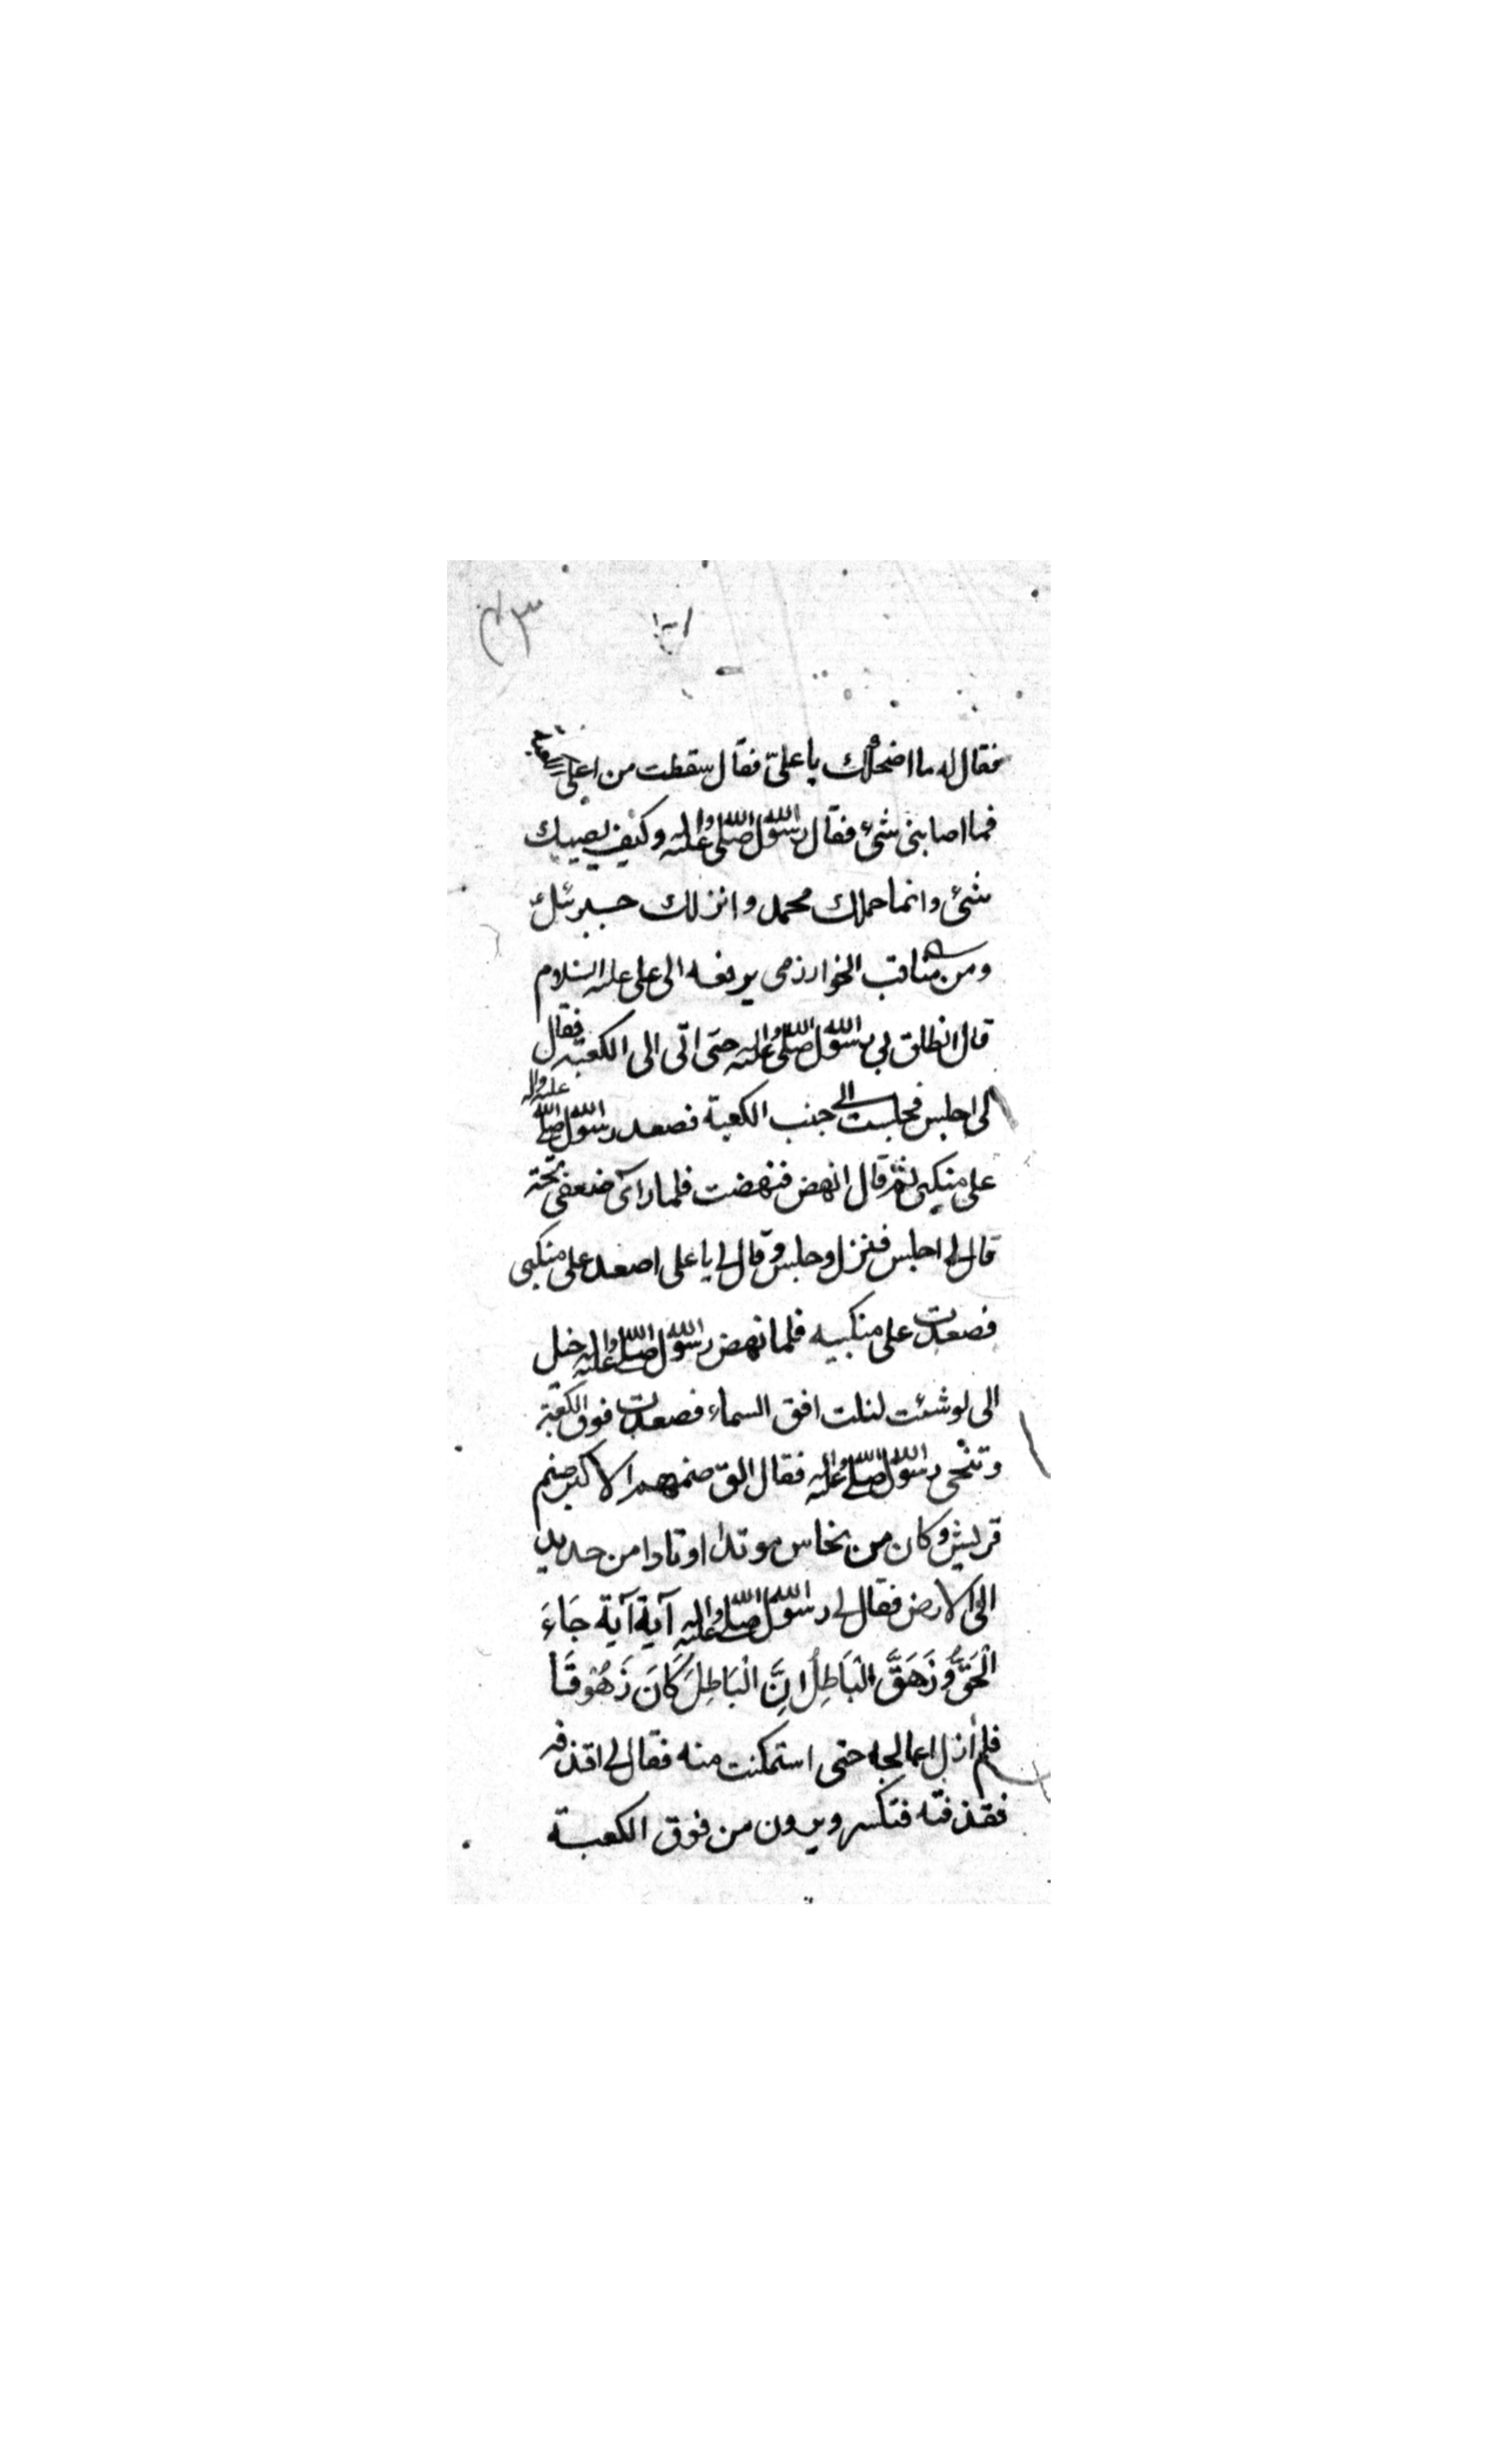 فقال له ما اضحكك يا علىّ فقال سقطت من اعلى
فما اصابنى شئ فقال رسول الله صلى الله عليه واله وكيف يصيبك
شئ وانما حملك محمد وانزلك جبرئيل
ومن مناقب الخوارزمى يرفعه الى على عليه السلام
قال انطلق بى رسول الله صلى الله عليه واله حتى اتى الى الكعبة فقال
لى اجلس فجلست الى جنب الكعبة فصعد رسول الله صلى الله عليه واله
على منكبى ثم قال انهض فنهضت فلما راى ضعفى تحته
قال لى اجلس فنزل وجلس وقال لى يا على اصعد على منكبى
فصعدت على منكبيه فلما نهض رسول الله صلى الله عليه واله خيل
الى لو شئت لنلت افق السماء فصعدت فوق الكعبة
وتنحى رسول الله صلى الله عليه واله فقال الق صنمهم الاكبر صنم
قريش وكان من نحاس موتدا اوتادا من حديد
الى الارض فقال لى رسول الله صلى الله عليه واله آية آية جَاءَ
الْحَقُّ وَزَهَقَ الْبَاطِلُ اِنَّ الْبَاطِلَ كَانَ زَهُوْقًا
فلم أزل اعالجه حتى استمكنت منه فقال لى اقذفه
فقذفته فتكسر ويرون من فوق الكعبة